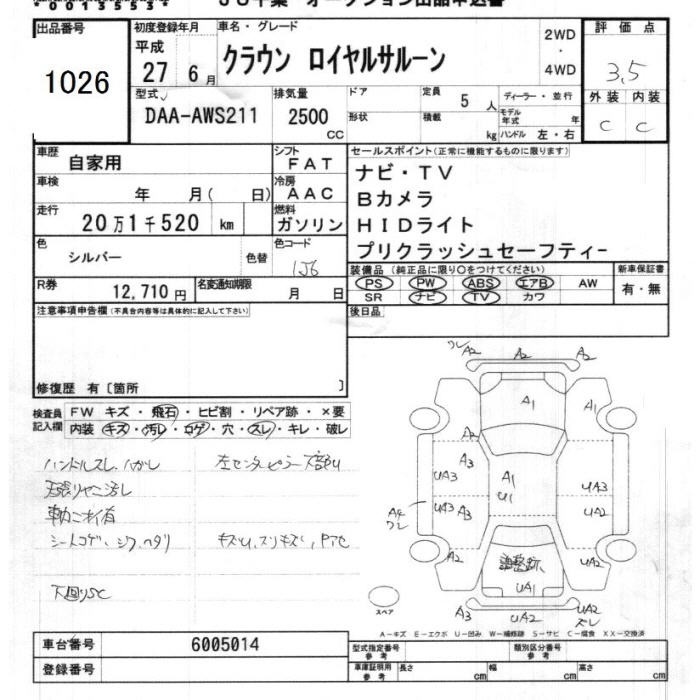 出品番号
1026
初度登録年月
平成
27 6月
車名・グレード
クラウン ロイヤルサルーン
2WD
・
4WD
評価点
3.5
外装 内装
C C
型式
DAA-AWS211
排気量
2500
CC
ドア
形状
定員 5人
積載 kg
ディーラー・並行
モデル年式 年
ハンドル 左・右
車歴 自家用
シフト FAT
車検 年 月( 日)
冷房 AAC
走行 20万1千520 km
燃料 ガソリン
色 シルバー 色替
色コード 1J6
R券 12,710円
名変通知期限 月 日
セールスポイント(正常に機能するものに限ります)
ナビ・TV
Bカメラ
HIDライト
プリクラッシュセーフティー
装備品(純正品に限り○をつけてください)
PS PW ABS エアB AW
SR ナビ TV カワ
新車保証書
有・無
後日品
注意事項申告欄(不具合内容等は具体的に記入して下さい)
修復歴 有〔箇所 〕
検査員記入欄
FW キズ・飛石・ヒビ割・リペア跡・×要
内装 キズ・汚レ・コゲ・穴・スレ・キレ・破レ
ハンドルスレ、ハガレ
天張りヤニ汚レ
車内ニオイ有
シートコゲ、シワ、ヘタリ
下回りSC
ワレ A2 A2 A2
A1 A1
A2
A3 UA3 A1 U1 UA3
UA3 A3 UA2
A4 ワレ
A2 調整跡 UA2
UA1
A3 UA2 UA2 ズレ
スペア
A-キズ E-エクボ U-凹み W-補修跡 S-サビ C-腐食 XX-交換済
車台番号 6005014
登録番号
型式指定番号 参考
類別区分番号 参考
車庫証明用 参考
長さ cm 幅 cm 高さ cm